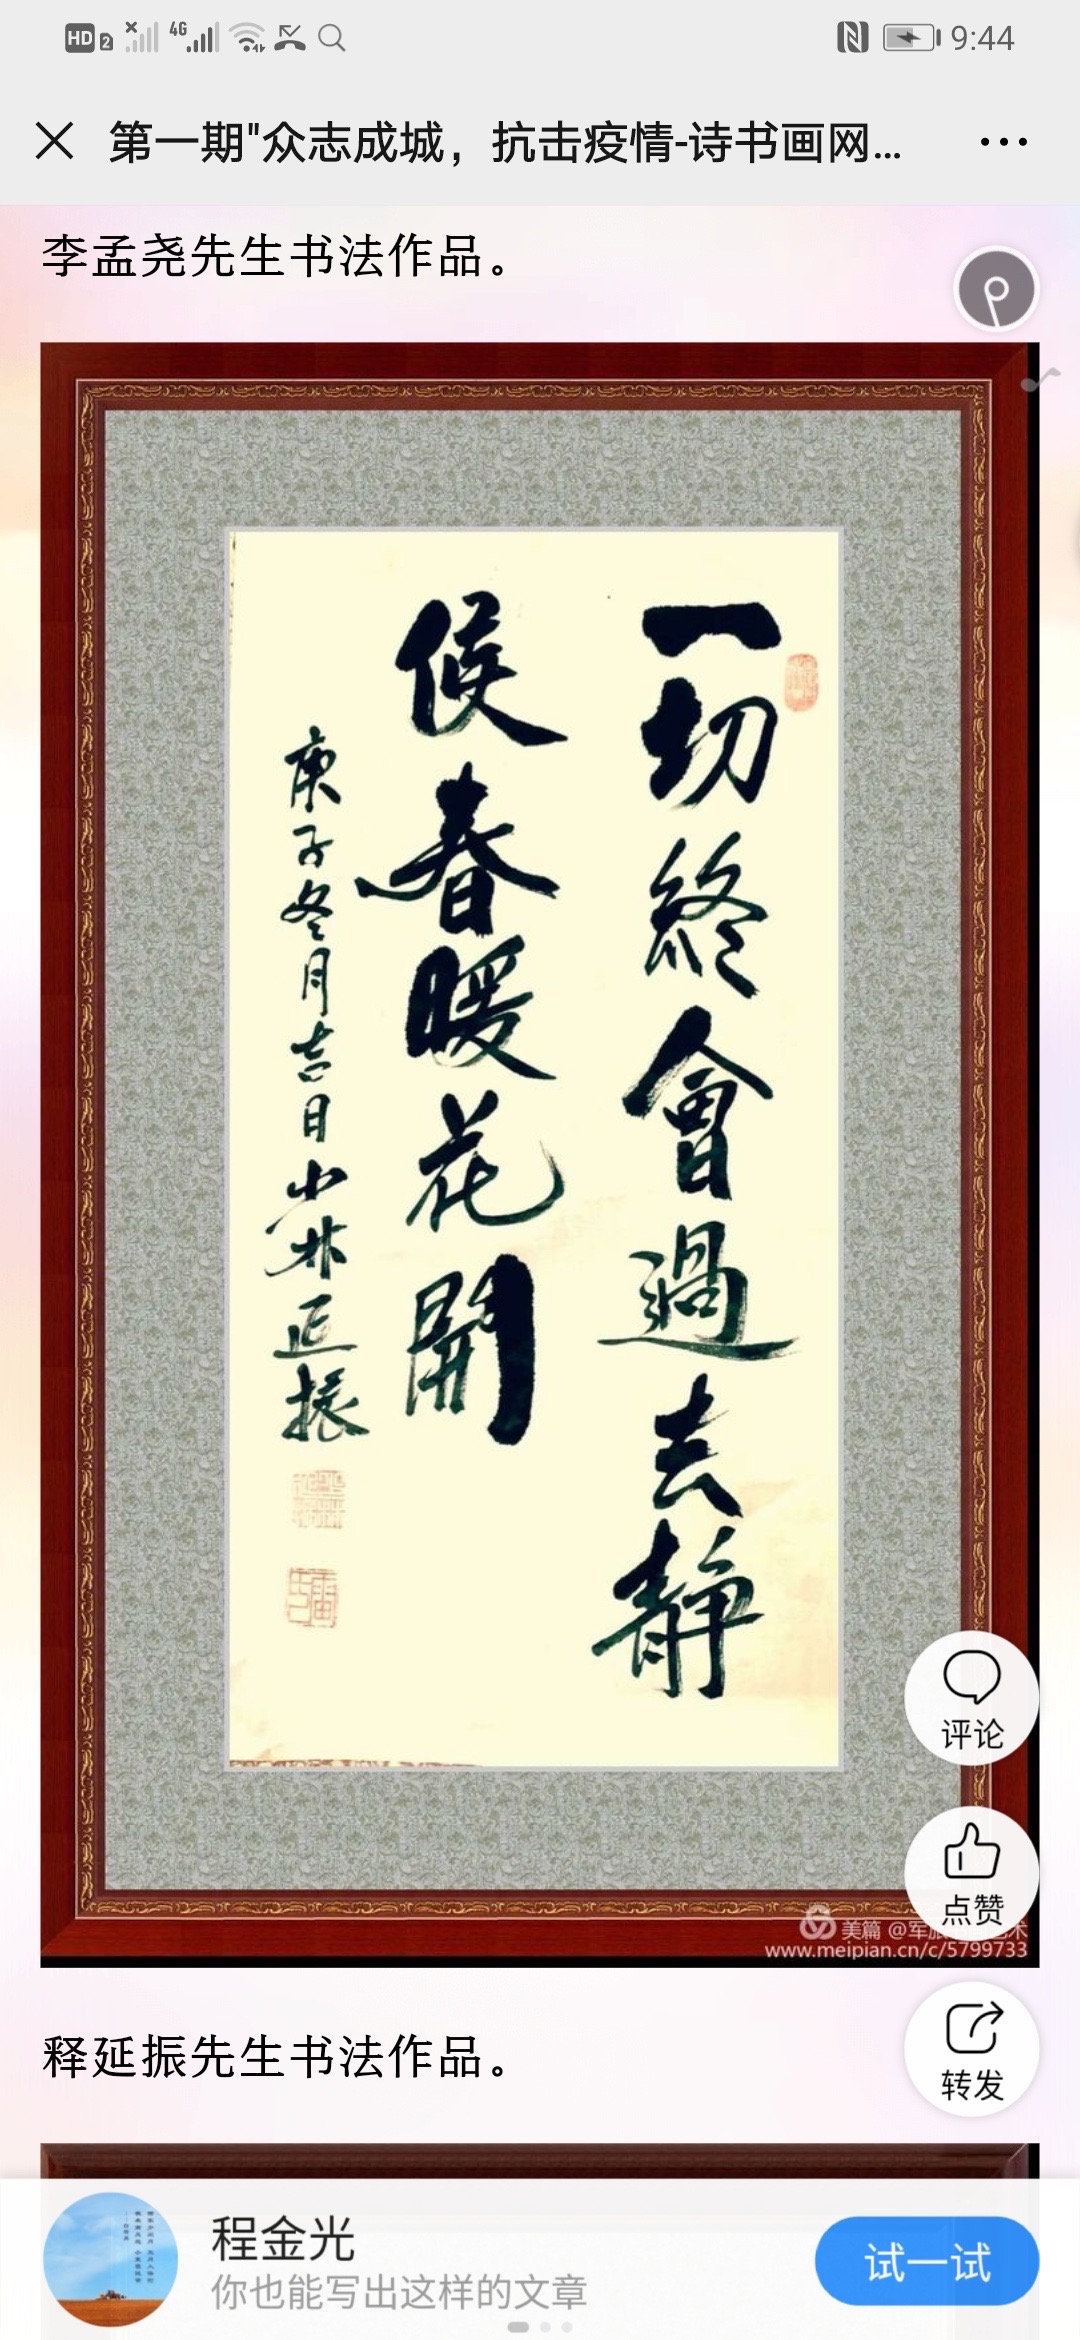 HD 2 4G 9:44
第一期"众志成城，抗击疫情-诗书画网...
李孟尧先生书法作品。
一切終會過去静
候春暖花開
庚子冬月吉日少林延振
评论
点赞
美篇 @军旅
www.meipian.cn/c/5799733
释延振先生书法作品。
转发
程金光
你也能写出这样的文章
试一试